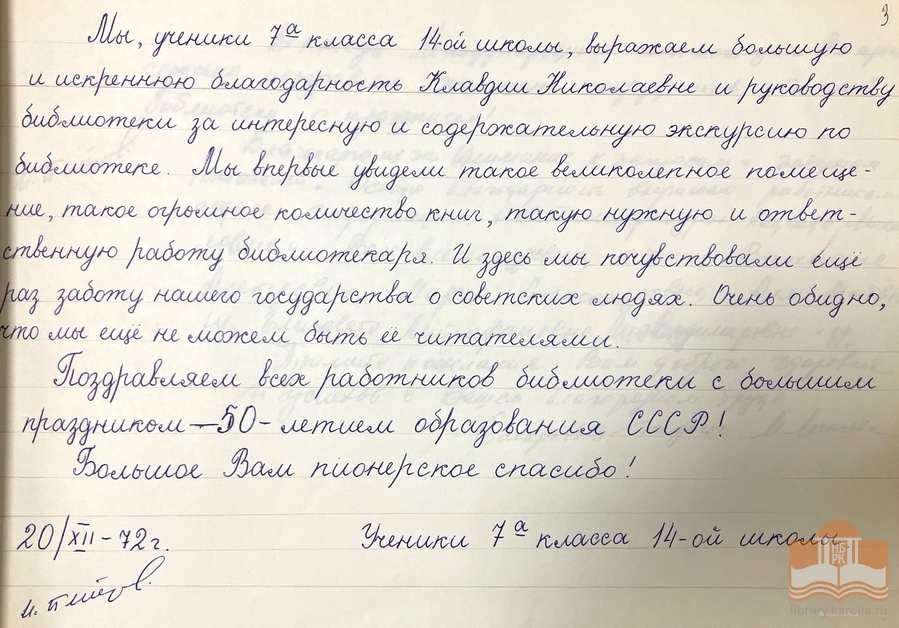 3
Мы, ученики 7а класса 14-ой школы, выражаем большую
и искреннюю благодарность Клавдии Николаевне и руководству
библиотеки за интересную и содержательную экскурсию по
библиотеке. Мы впервые увидели такое великолепное помеще-
ние, такое огромное количество книг, такую нужную и ответ-
ственную работу библиотекаря. И здесь мы почувствовали ещё
раз заботу нашего государства о советских людях. Очень обидно,
что мы ещё не можем быть её читателями.
Поздравляем всех работников библиотеки с большим
праздником – 50-летием образования СССР!
Большое Вам пионерское спасибо!
20/XII-72г. Ученики 7а класса 14-ой школы
НБ
РК
library.karelia.ru